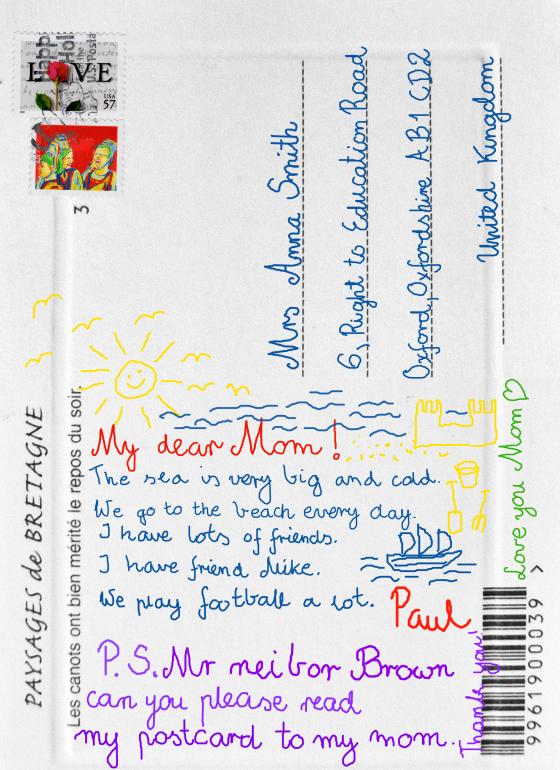 LOVE
USA
57
3
Mrs Anna Smith
6, Right to Education Road
Oxford, Oxfordshire AB1 CD2
United Kingdom
PAYSAGES de BRETAGNE
Les canots ont bien mérité le repos du soir.
My dear Mom!
The sea is very big and cold.
We go to the beach every day.
I have lots of friends.
I have friend Mike.
We play football a lot.
Paul
Love you Mom
P.S. Mr neibor Brown
can you please read
my postcard to my mom.
Thank you!
9961900039 >